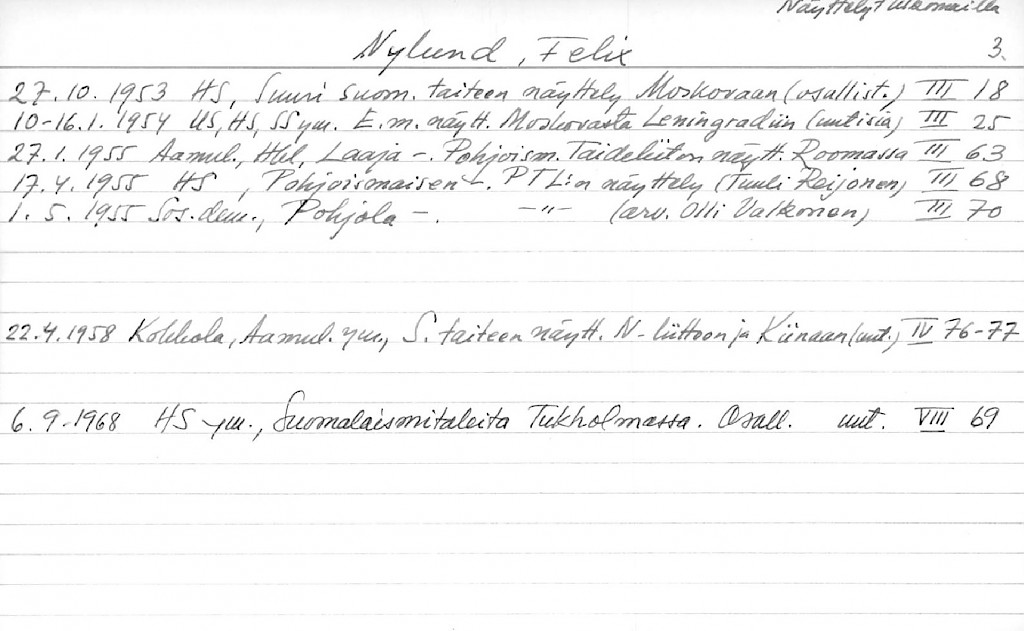 Näyttelyt ulkomailla
Nylund, Felix 3.
27.10.1953 HS, Suuri suom. taiteen näyttely Moskovaan (osallist.) III 18
10-16.1.1954 US, HS, SS ym. E.m. näytt. Moskovasta Leningradiin (uutisia) III 25
27.1.1955 Aamul., Hbl, Laaja -. Pohjoism. Taideliiton näytt. Roomassa III 63
17.4.1955 HS, Pohjoismaisen -. PTL:n näyttely (Tuuli Reijonen) III 68
1.5.1955 Sos.dem., Pohjola -. -"- (arv. Olli Valkonen) III 70
22.4.1958 Kokkola, Aamul. ym., S. taiteen näytt. N-liittoon ja Kiinaan (uut.) IV 76-77
6.9.1968 HS ym., Suomalaismitaleita Tukholmassa. Osall. uut. VIII 69